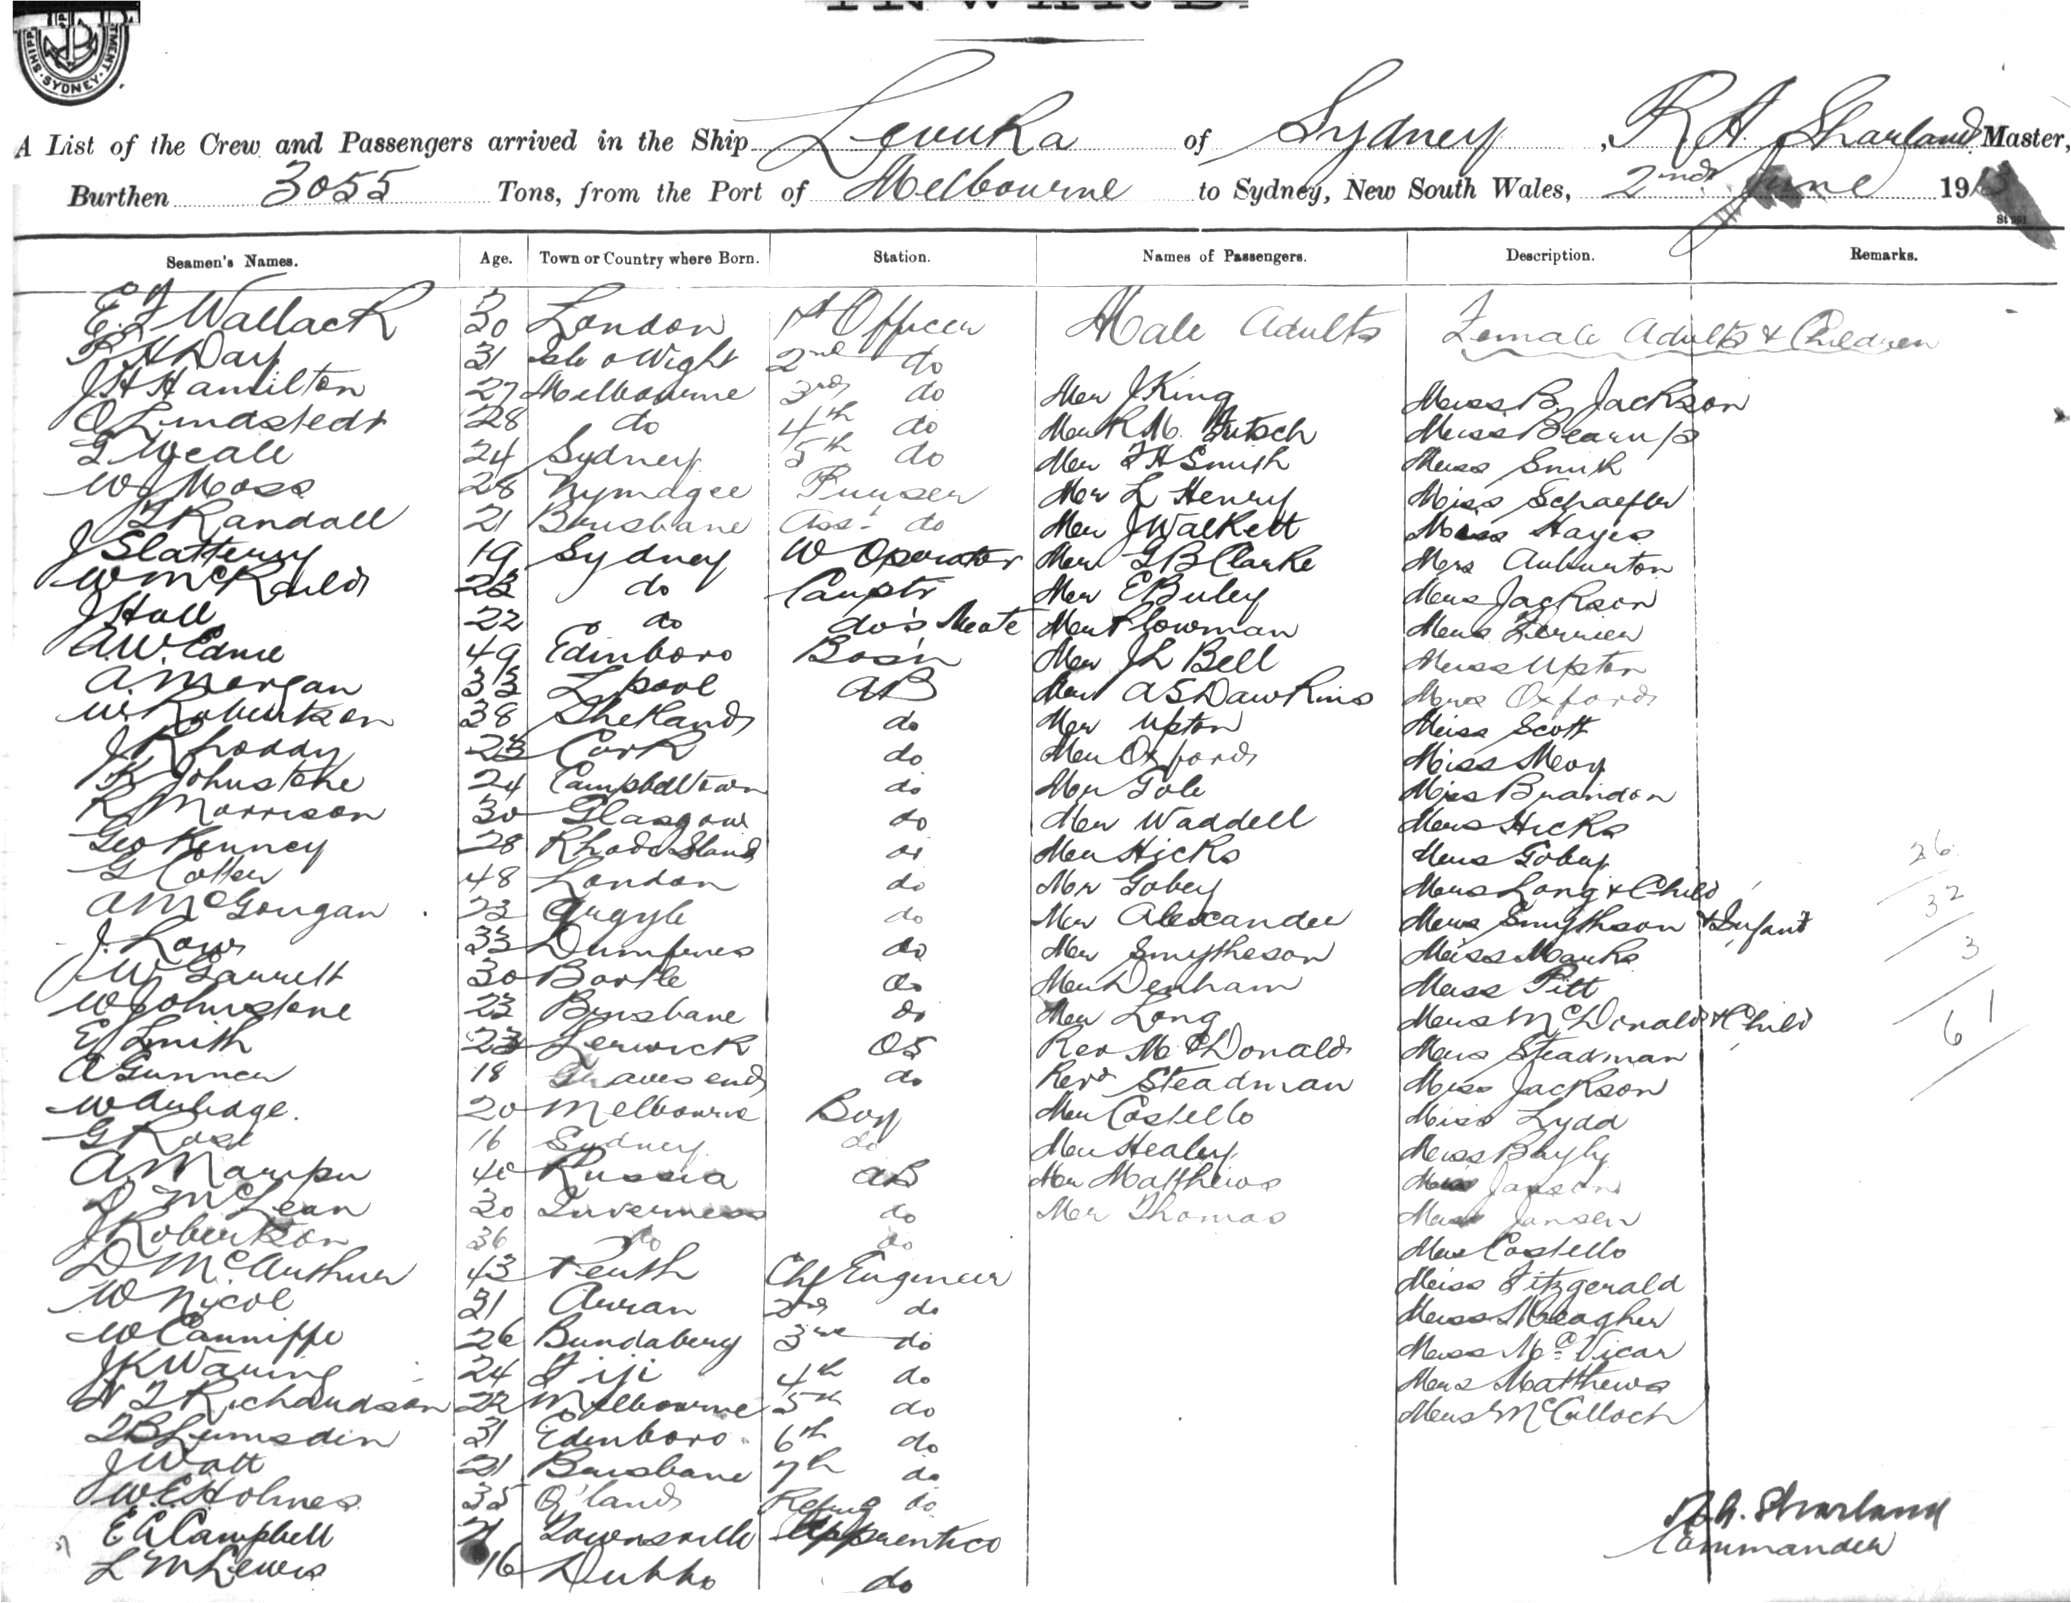 INWARD.
SYDNEY
A List of the Crew and Passengers arrived in the Ship Levuka of Sydney, R A Sharland Master,
Burthen 3055 Tons, from the Port of Melbourne to Sydney, New South Wales, 2nd June 191
Seamen's Names. Age. Town or Country where Born. Station. Names of Passengers. Description. Remarks.
Wallack 30 London 1st Officer Male Adults Female Adults & Children
F H Day 31 Isle o Wight 2nd do
J H Hamilton 27 Melbourne 3rd do Mr J King Miss B Jackson
O Lindstedt 28 do 4th do Mr R M Miss Bearup
G Weall 24 Sydney 5th do Mr F H Smith Miss Smith
W J Moss 28 Nymagee Purser Mr L Henry Miss Schaefer
Randall 21 Brisbane Asst do Mr J Walkett Miss Hayes
J Slattery 19 Sydney W Operator Mr G B Clarke Mrs Auburton
W McKauld 23 do Carptr Mr E Buley Mrs Jackson
J Hall 22 do do's Mate Mr Plowman Mrs Ferrier
A. W. Edme 49 Edinboro Bos'n Mr J L Bell Miss Upton
A. Morgan 33 L pool AB Mr A S Dawkins Mrs Oxford
W Robertson 38 Shetland do Mr Upton Miss Scott
J Rhoddy 23 Cork do Mr Oxford Miss Meoy
Johnstone 24 Campbelltown do Mr Gole Miss Brandon
R Morrison 30 Glasgow do Mr Waddell Mrs Hicks
Geo Kenney 28 Rhode Island do Mr Hicks Mrs Gobey 26
G Cotter 48 London do Mr Gobey Mrs Long & Child 32
A McGougan 23 Argyle do Mr Alexander Mrs Smythson & Infant
J. Low 33 Dumfries do Mr Smytheson Miss Marks 3
J W Garrett 30 Bootle do Mr Denham Miss Pitt
W Johnstone 23 Brisbane do Mr Long Mrs McDonald & Child 61
E Smith 23 Lerwick OS Rev McDonald Mrs Steadman
A Gunner 18 Gravesend do Revd Steadman Miss Jackson
W 20 Melbourne Boy Mr Costello Miss Lydd
G Rose 16 Sydney do Mr Healey Miss Bayly
A 40 Russia AB Mr Matthews Janson
D McLean 30 Inverness do Mr Thomas Jansen
J Robertson 36 do do Mrs Costello
D McArthur 43 Perth Chf Engineer Miss Fitzgerald
W Nicol 31 Arran 2nd do Miss Meagher
W Canniffe 26 Bundaberg 3rd do Miss McVicar
J K Waring 24 Fiji 4th do Mrs Matthews
Richardson 22 Melbourne 5th do Mrs McCulloch
Lumsden 31 Edinboro 6th do
J Watt 21 Brisbane 7th do
W. E. Holmes 35 Q'land Refrig do R. A. Sharland
E A Campbell 21 Townsville Apprentice Commander
L M Lewis 16 Dubbo do